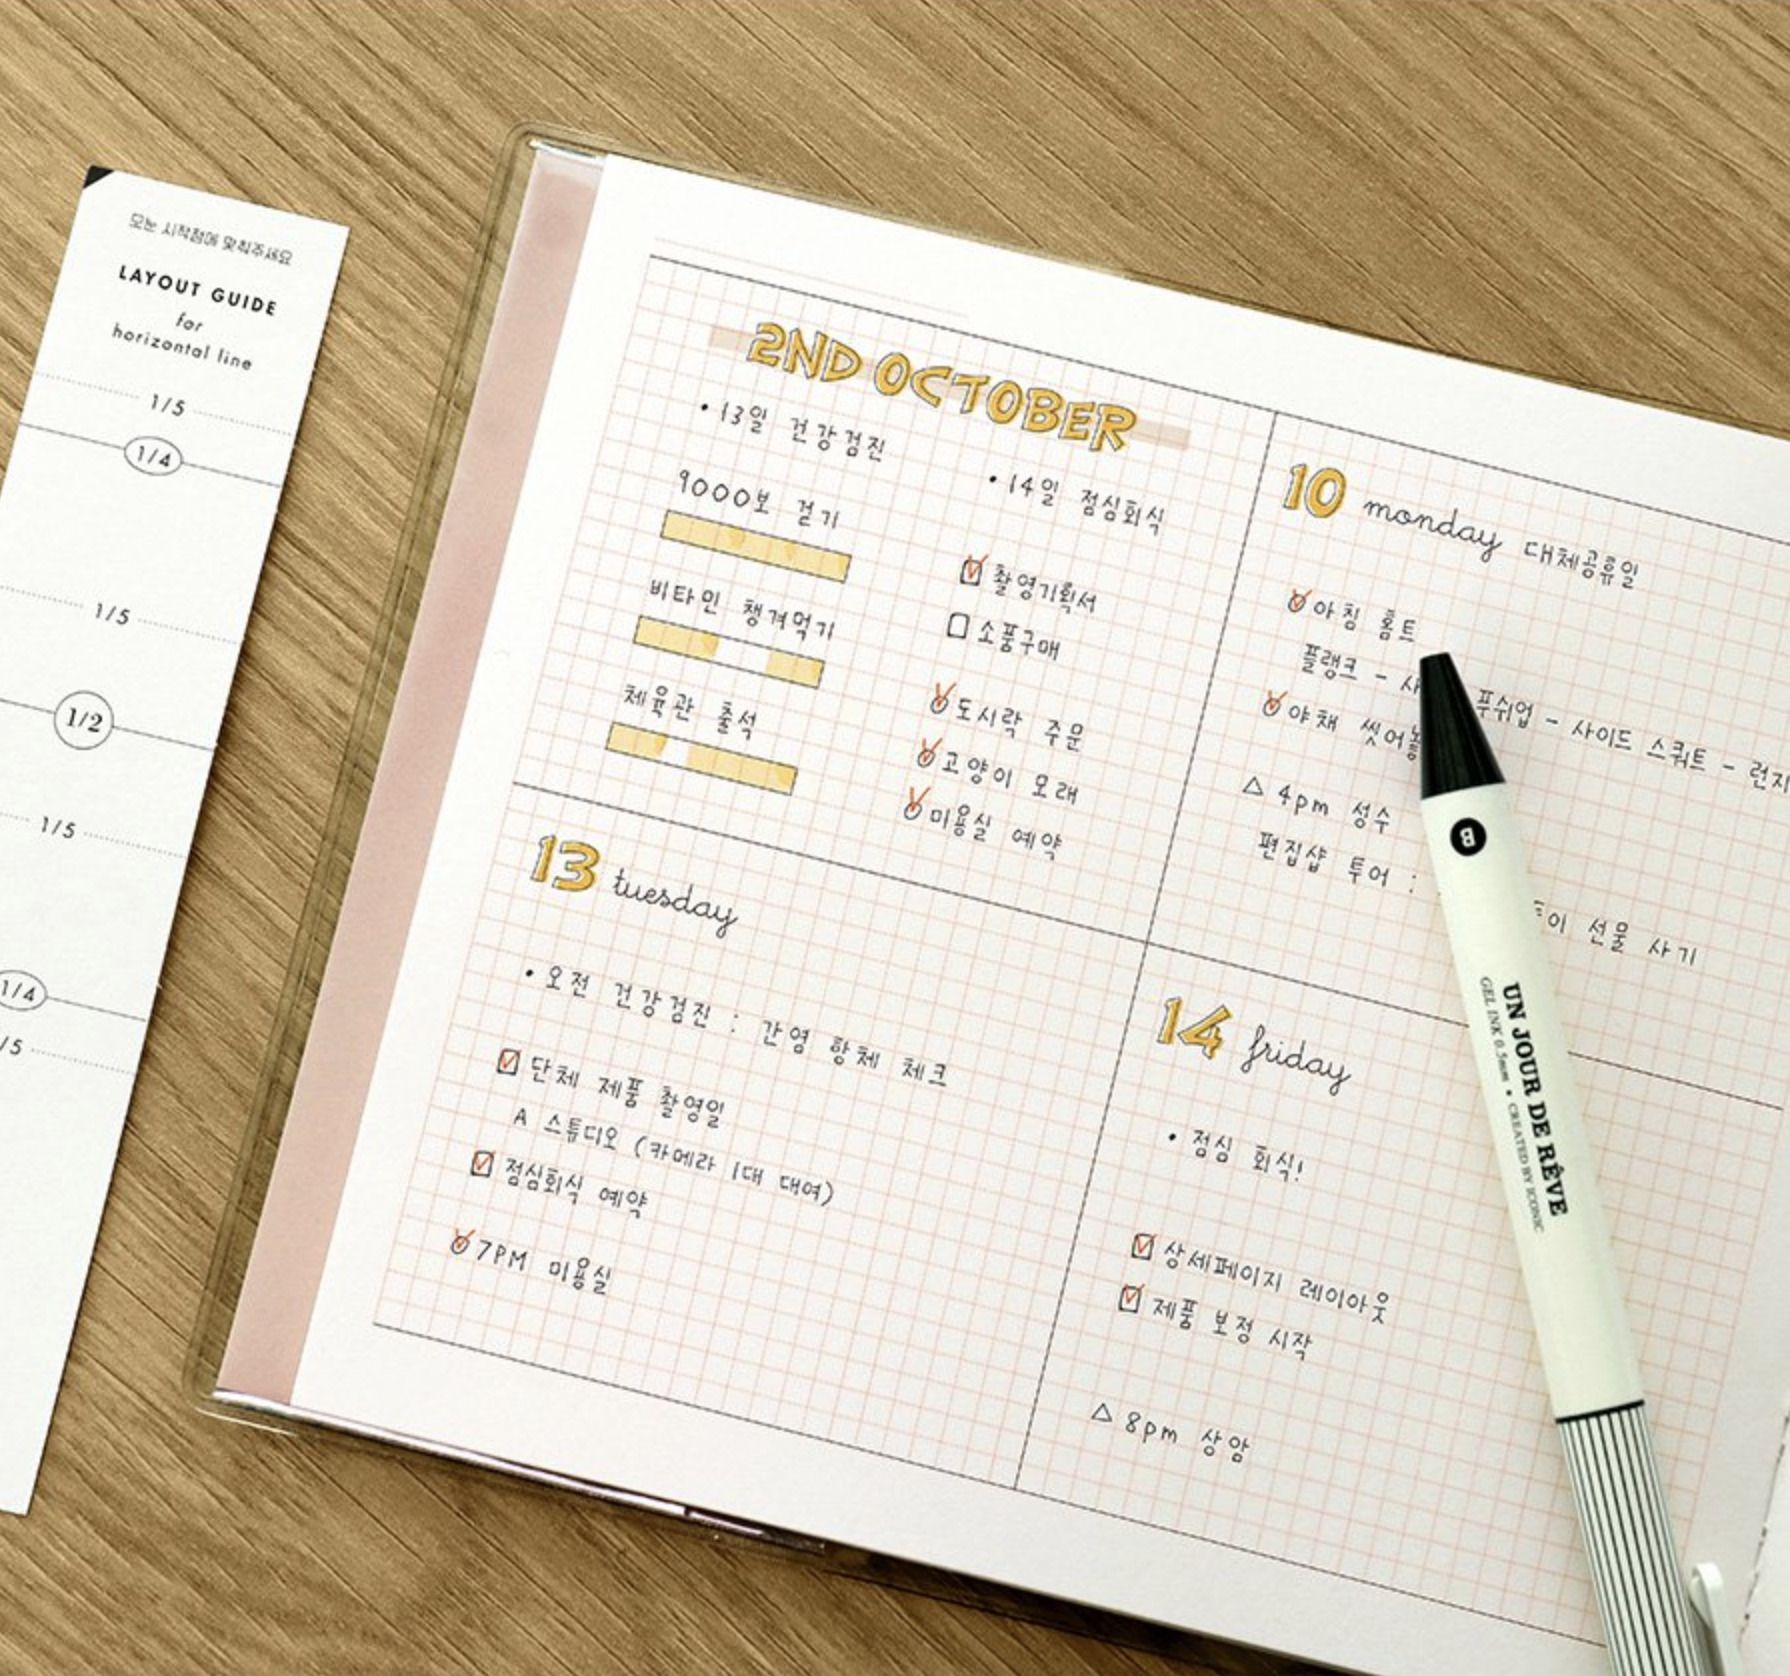 모눈 시작점에 맞춰주세요
LAYOUT GUIDE
for
horizontal line
1/5
1/4
1/5
1/2
1/5
1/4
/5
2ND OCTOBER
• 13일 건강검진
9000보 걷기
비타민 챙겨먹기
체육관 출석
• 14일 점심회식
촬영기획서
소품구매
도시락 주문
고양이 모래
미용실 예약
10 monday 대체공휴일
아침 홈트
플랭크 - 사 푸쉬업 - 사이드 스쿼트 - 런지
야채 씻어놓
△ 4pm 성수
편집샵 투어 : 이 선물 사기
13 tuesday
• 오전 건강검진 : 간염 항체 체크
단체 제품 촬영일
A 스튜디오 (카메라 1대 대여)
점심회식 예약
7PM 미용실
14 friday
• 점심 회식!
상세페이지 레이아웃
제품 보정 시작
△ 8pm 상암
B
UN JOUR DE RÊVE
GEL INK 0.5mm • CREATED BY ICONIC